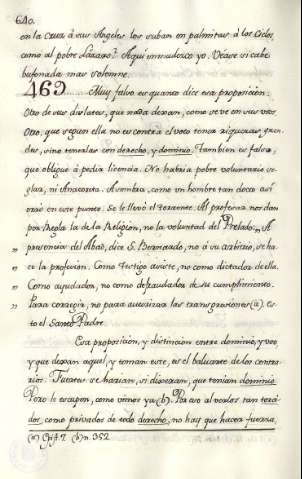 640.
en la Cuna á sus Angeles los suban en palmitas á los Cielos,
como al pobre Lazaro? Aqui enmudezco yo. Vease si cabe
bufonada mas solemne.
469 Muy falso es quanto dice esa proposicion.
Otro de sus dislates, que nada dexan, como se ve en sus votos
Otro, que segun ella no es contra el voto tener riquezas gran-
des, sino tenerlas con derecho, y dominio. Tambien es falso,
que obligue á pedir licencia. No habria pobre voluntario se-
glar, ni Anacoreta. Asombra, como un hombre tan docto asi
erró en este punto. Se le llevó el torrente. Al profesar nos dan
por Regla la de la Religion, no la voluntad del Prelado. A
presencia del Abad, dice S. Bernardo, no á su arbitrio, se ha-
ce la profesion. Como testigo asiste, no como dictador de ella.
Como ayudador, no como defraudador de su cumplimiento.
Para corregir, no para autorizar las transgresiones (a). Es-
to el Santo Padre.
Esa proposicion, y distincion entre dominio, y uso,
y que dexan aquel, y toman este, es el baluarte de los contra-
rios. Fuertes se harian, si dixeran, que tenian dominio.
Pero lo escupen, como vimos ya (b). Por eso al verlos tan
dos, como privados de todo derecho, no hay que hacer fuerza,
(a) Epist. 7 (b) n. 352